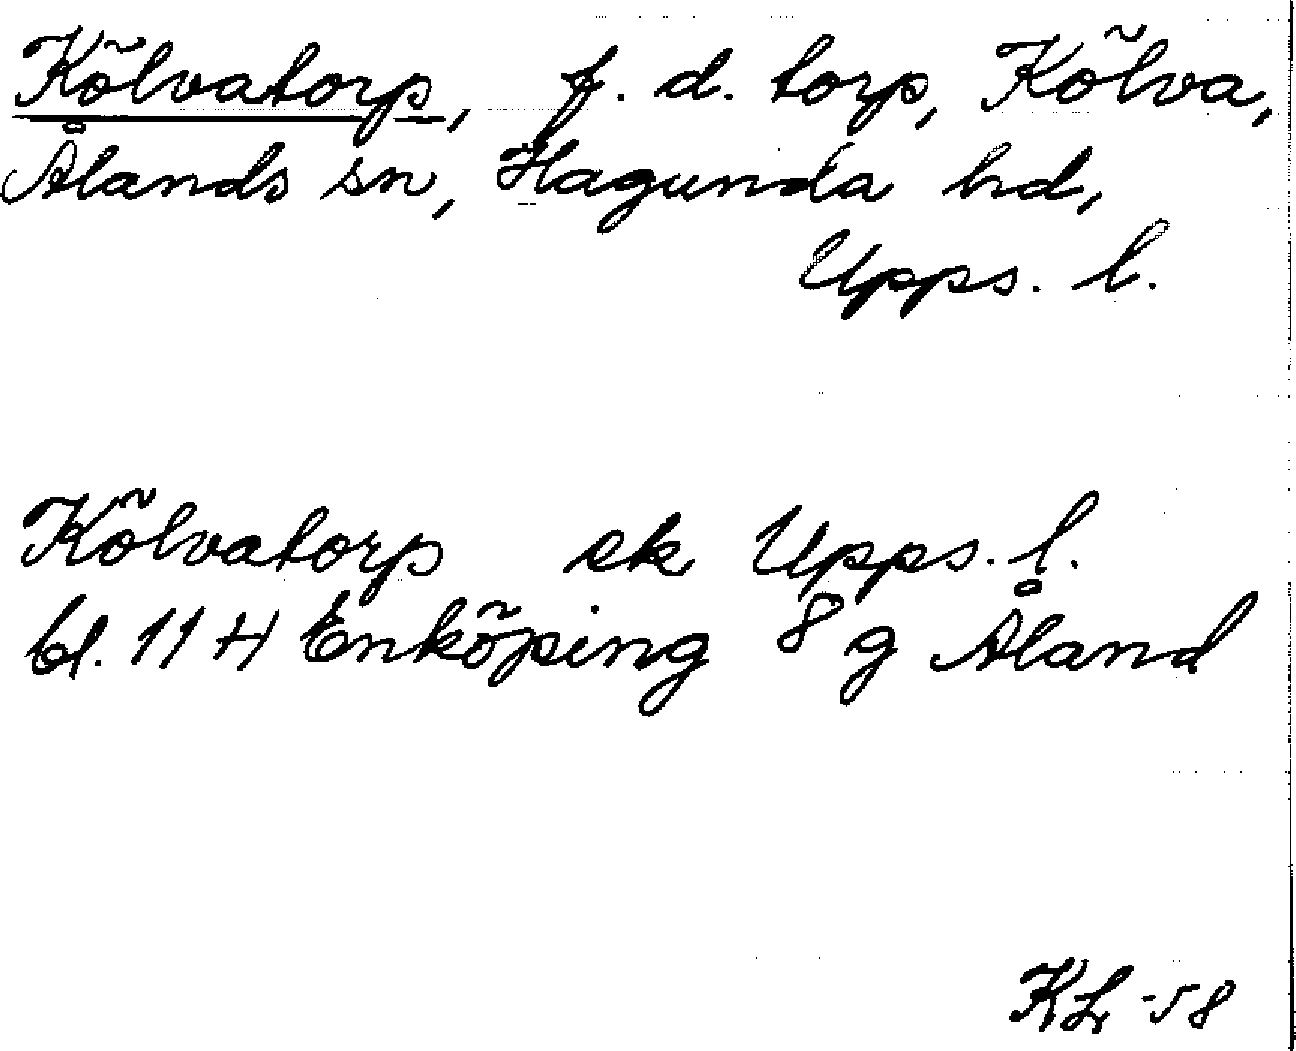 Kõlvatorp, f. d. torp, Kõlva,
Ålands sn, Hagunda hd,
Upps. l.
Kõlvatorp ek Upps. l.
bl. 11 H Enkõping 8 g Åland
KL -58